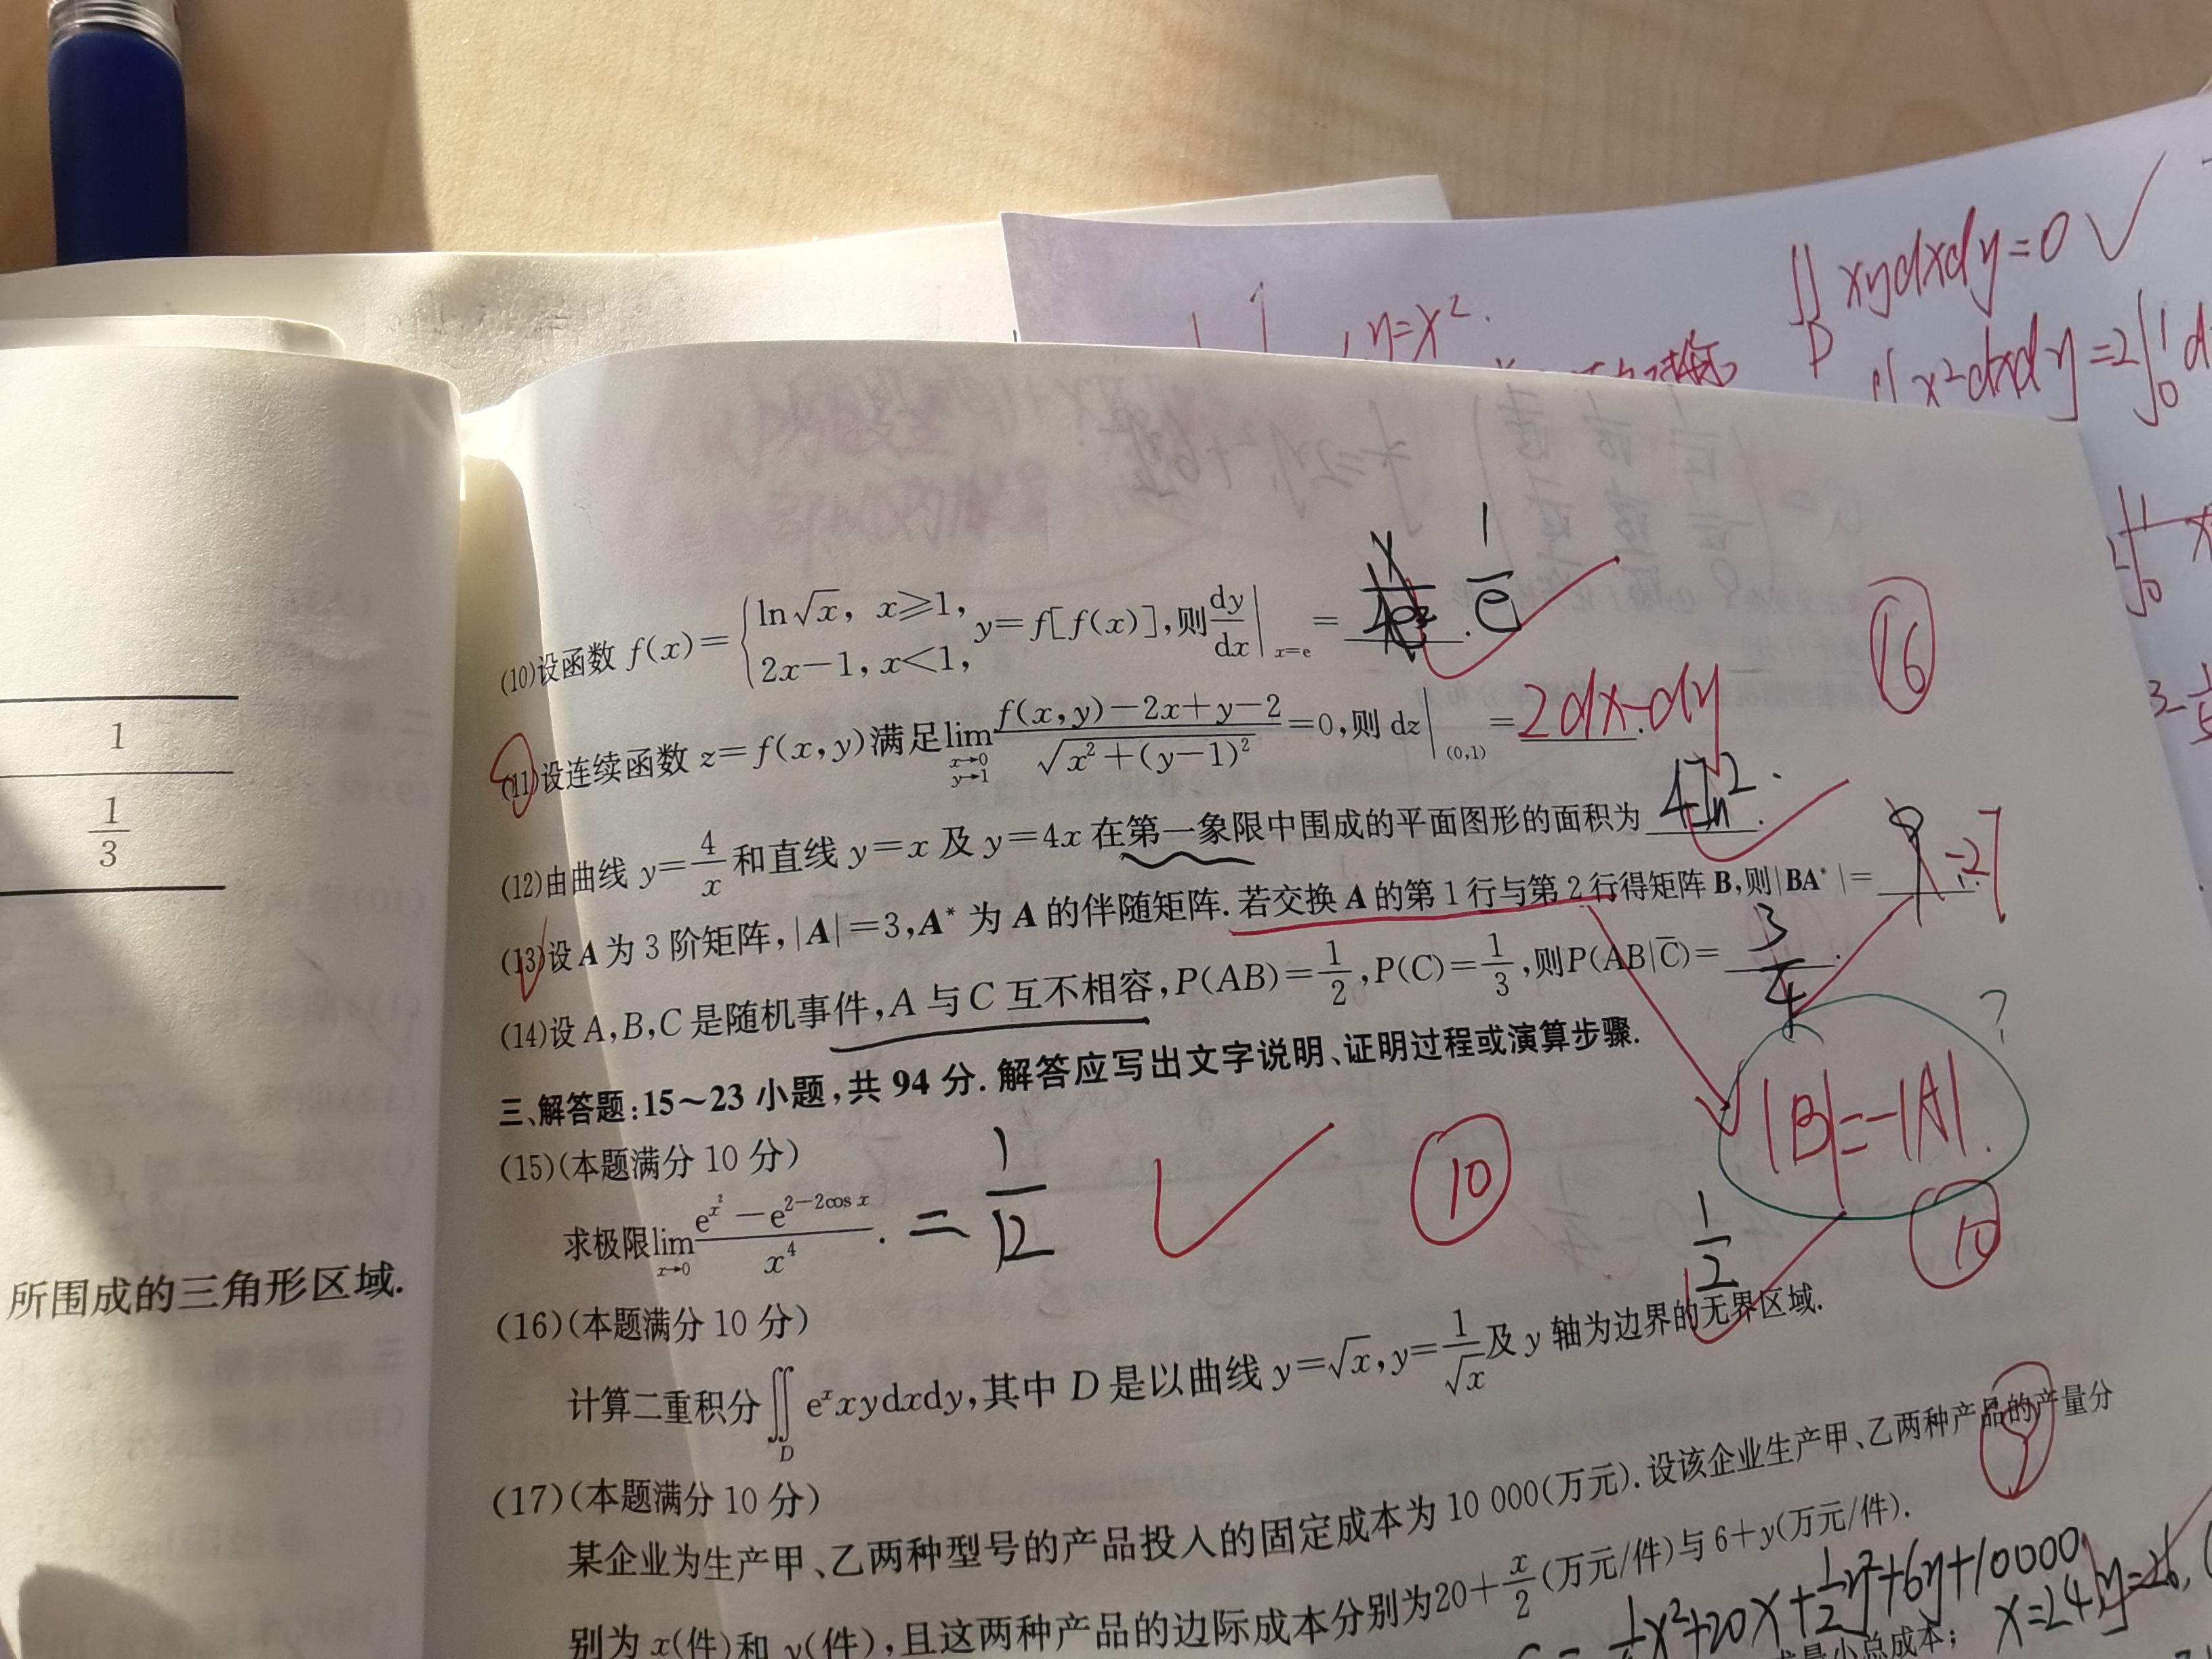 ∬_D xydxdy=0 ✓
y=x².
∬x²dxdy=2∫₀¹d
1
1/3
所围成的三角形区域.
(10)设函数 f(x)={ln√x, x≥1, 2x−1, x<1, y=f[f(x)],则dy/dx|_{x=e}=____. 1/e
⑯
(11)设连续函数 z=f(x,y)满足lim_{x→0 y→1} (f(x,y)−2x+y−2)/√(x²+(y−1)²)=0,则 dz|_(0,1)=2dx-dy.
(12)由曲线 y=4/x和直线 y=x 及 y=4x 在第一象限中围成的平面图形的面积为 4ln2.
(13)设 A 为 3 阶矩阵,|A|=3,A* 为 A 的伴随矩阵.若交换 A 的第 1 行与第 2 行得矩阵 B,则|BA*|=____. -27
(14)设 A,B,C 是随机事件,A 与 C 互不相容,P(AB)=1/2,P(C)=1/3,则P(AB|C̄)=3/4.
?
|B|=-|A|.
三、解答题:15~23 小题,共 94 分.解答应写出文字说明、证明过程或演算步骤.
(15)(本题满分 10 分)
求极限lim_{x→0} (e^{x²}−e^{2−2cos x})/x⁴. = 1/12
⑩
(16)(本题满分 10 分)
1/2
⑩
计算二重积分∬_D eˣxydxdy,其中 D 是以曲线 y=√x,y=1/√x及 y 轴为边界的无界区域.
(17)(本题满分 10 分)
某企业为生产甲、乙两种型号的产品投入的固定成本为 10 000(万元).设该企业生产甲、乙两种产品的产量分
别为 x(件)和 y(件),且这两种产品的边际成本分别为20+x/2(万元/件)与 6+y(万元/件).
x²+20x+½y²+6y+10000
小总成本; x=24 y=26,